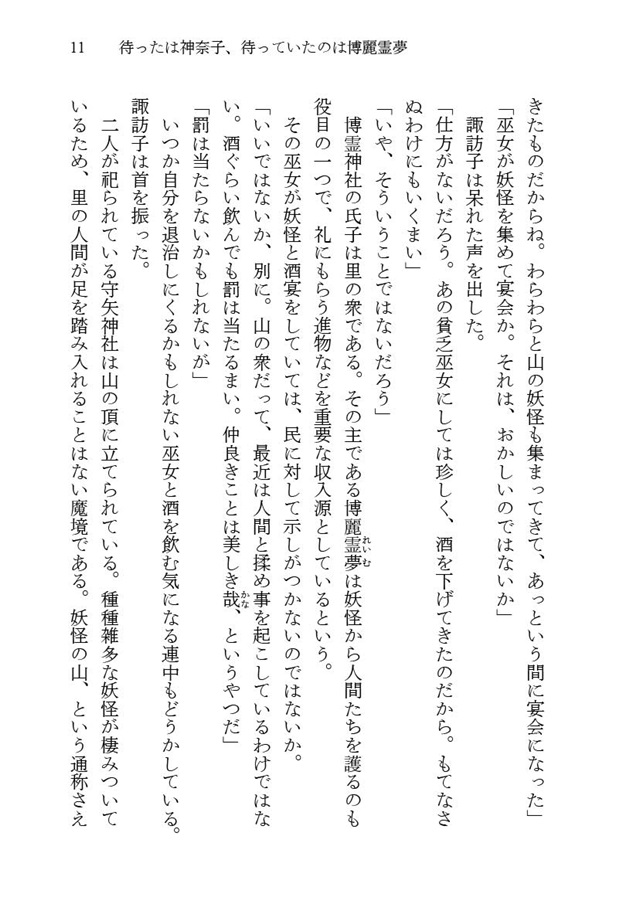 11　待ったは神奈子、待っていたのは博麗霊夢
きたものだからね。わらわらと山の妖怪も集まってきて、あっという間に宴会になった」
「巫女が妖怪を集めて宴会か。それは、おかしいのではないか」
　諏訪子は呆れた声を出した。
「仕方がないだろう。あの貧乏巫女にしては珍しく、酒を下げてきたのだから。もてなさ
ぬわけにもいくまい」
「いや、そういうことではないだろう」
　博霊神社の氏子は里の衆である。その主である博麗霊夢は妖怪から人間たちを護るのも
れいむ
役目の一つで、礼にもらう進物などを重要な収入源としているという。
　その巫女が妖怪と酒宴をしていては、民に対して示しがつかないのではないか。
「いいではないか、別に。山の衆だって、最近は人間と揉め事を起こしているわけではな
い。酒ぐらい飲んでも罰は当たるまい。仲良きことは美しき哉、というやつだ」
かな
「罰は当たらないかもしれないが」
　いつか自分を退治しにくるかもしれない巫女と酒を飲む気になる連中もどうかしている。
諏訪子は首を振った。
　二人が祀られている守矢神社は山の頂に立てられている。種種雑多な妖怪が棲みついて
いるため、里の人間が足を踏み入れることはない魔境である。妖怪の山、という通称さえ